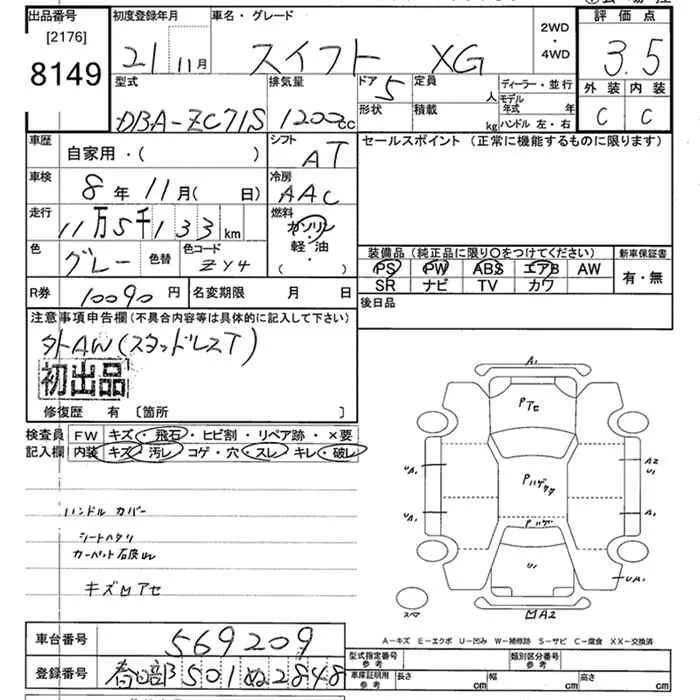 出品番号 初度登録年月 車名・グレード 2WD 評価点
[2176] ・
8149 21 11月 スイフト XG 4WD 3.5
型式 排気量 ドア 5 定員 人 ディーラー・並行 外装 内装
DBA-ZC71S 1200cc 形状 積載 kg モデル年式 年 C C
ハンドル 左・右
車歴 自家用・( ) シフト AT セールスポイント (正常に機能するものに限ります)
車検 8年 11月( 日) 冷房 AAC
走行 11万5千133km 燃料 ガソリン・軽油 ( )
色 グレー 色替 色コード ZY4
装備品 (純正品に限り〇をつけてください) 新車保証書
PS PW ABS エアB AW 有・無
SR ナビ TV カワ
R券 10090円 名変期限 月 日 後日品
注意事項申告欄(不具合内容等は具体的に記入して下さい)
外AW(スタッドレスT)
初出品
修復歴 有 〔箇所 〕
検査員 FW キズ・飛石・ヒビ割・リペア跡・×要
記入欄 内装 キズ・汚レ・コゲ・穴・スレ・キレ・破レ
ハンドル カバー
シートヘタリ
カーペット
キズ凹アセ
A1
Pアセ
UA1 A2
U1
Pハゲタク
UA1 A1
Pハゲ
U1 UA1
スペア 凹A2
A-キズ E-エクボ U-凹み W-補修跡 S-サビ C-腐食 XX-交換済
車台番号 569209
型式指定番号 参考 類別区分番号 参考
登録番号 春日部 501 ぬ 2848
車庫証明用 参考 長さ cm 幅 cm 高さ cm